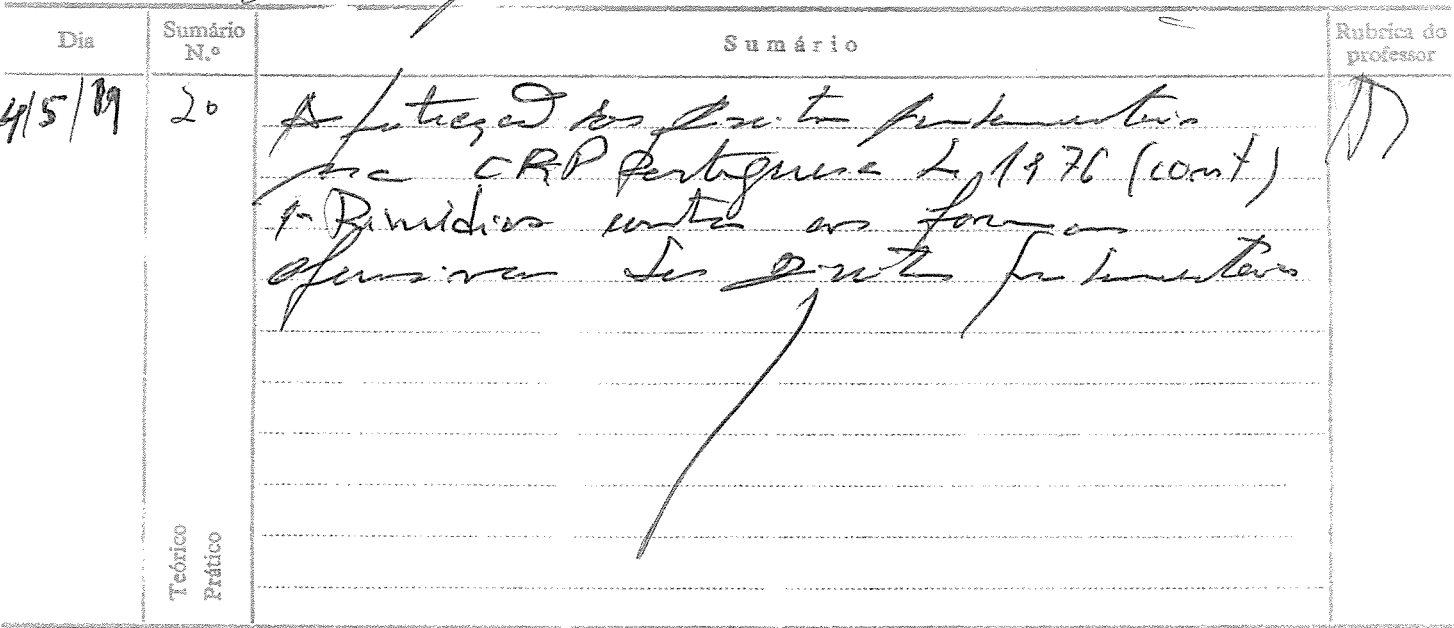 Dia
Sumário N.º
Sumário
Rubrica do professor
4/5/89
20
A protecção dos direitos fundamentais
na CRP Portuguesa de 1976 (cont)
1- Remédios contra as formas
ofensivas dos Direitos fundamentais
Teórico
Prático